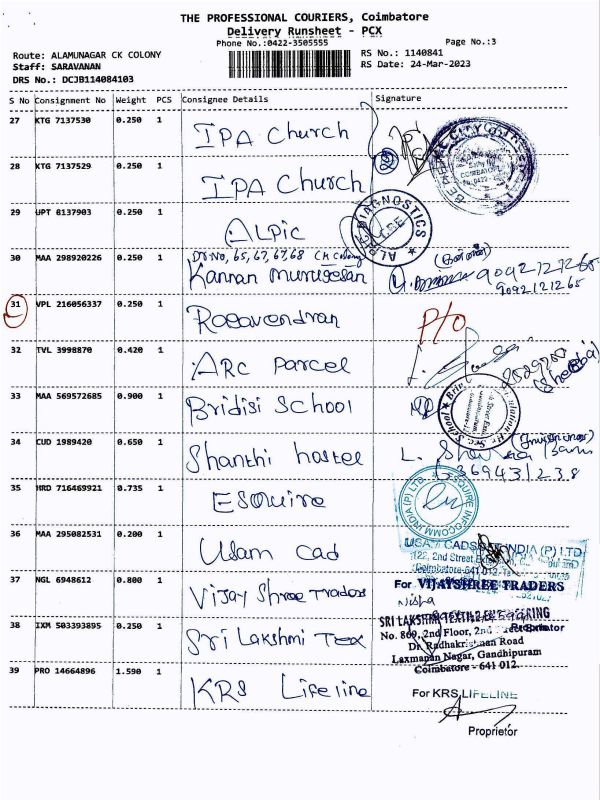 THE PROFESSIONAL COURIERS, Coimbatore
Delivery Runsheet - PCX
Phone No.:0422-3505555 Page No.:3
Route: ALAMUNAGAR CK COLONY RS No.: 1140841
Staff: SARAVANAN RS Date: 24-Mar-2023
DRS No.: DCJB114084103
S No Consignment No Weight PCS Consignee Details Signature
27 KTG 7137530 0.250 1 IPA Church
28 KTG 7137529 0.250 1 IPA Church
29 UPT 8137903 0.250 1 ALPIC
ALPIC DIAGNOSTICS CBE
Dr No, 65, 67, 67, 68 CK Colony
30 MAA 298920226 0.250 1 Kannan Murugesan 9092121265
9092121265
31 VPL 216056337 0.250 1 Ragavendran P/o
32 TVL 3998870 0.420 1 ARC Parcel
33 MAA 569572685 0.900 1 Bridisi School
34 CUD 1989420 0.650 1 Shanthi hostel
35 HRD 716469921 0.735 1 ESquire
ESQUIRE INFOCOMM INDIA (P) LTD.
36 MAA 295082531 0.200 1 Usam Cad
CADSOFT INDIA (P) LTD
122, 2nd Street
Coimbatore-641 012
37 NGL 6948612 0.800 1 Vijay Shree Traders
For VIJAYSHREE TRADERS
Nisha
38 IXM 503393895 0.250 1 Sri Lakshmi Tex
SRI LAKSHMI
Proprietor
No. 869, 2nd Floor, 2nd Street
Dr. Radhakrishnan Road
Laxmanan Nagar, Gandhipuram
Coimbatore - 641 012.
39 PRO 14664896 1.590 1 KRS Lifeline
For KRS LIFELINE
Proprietor